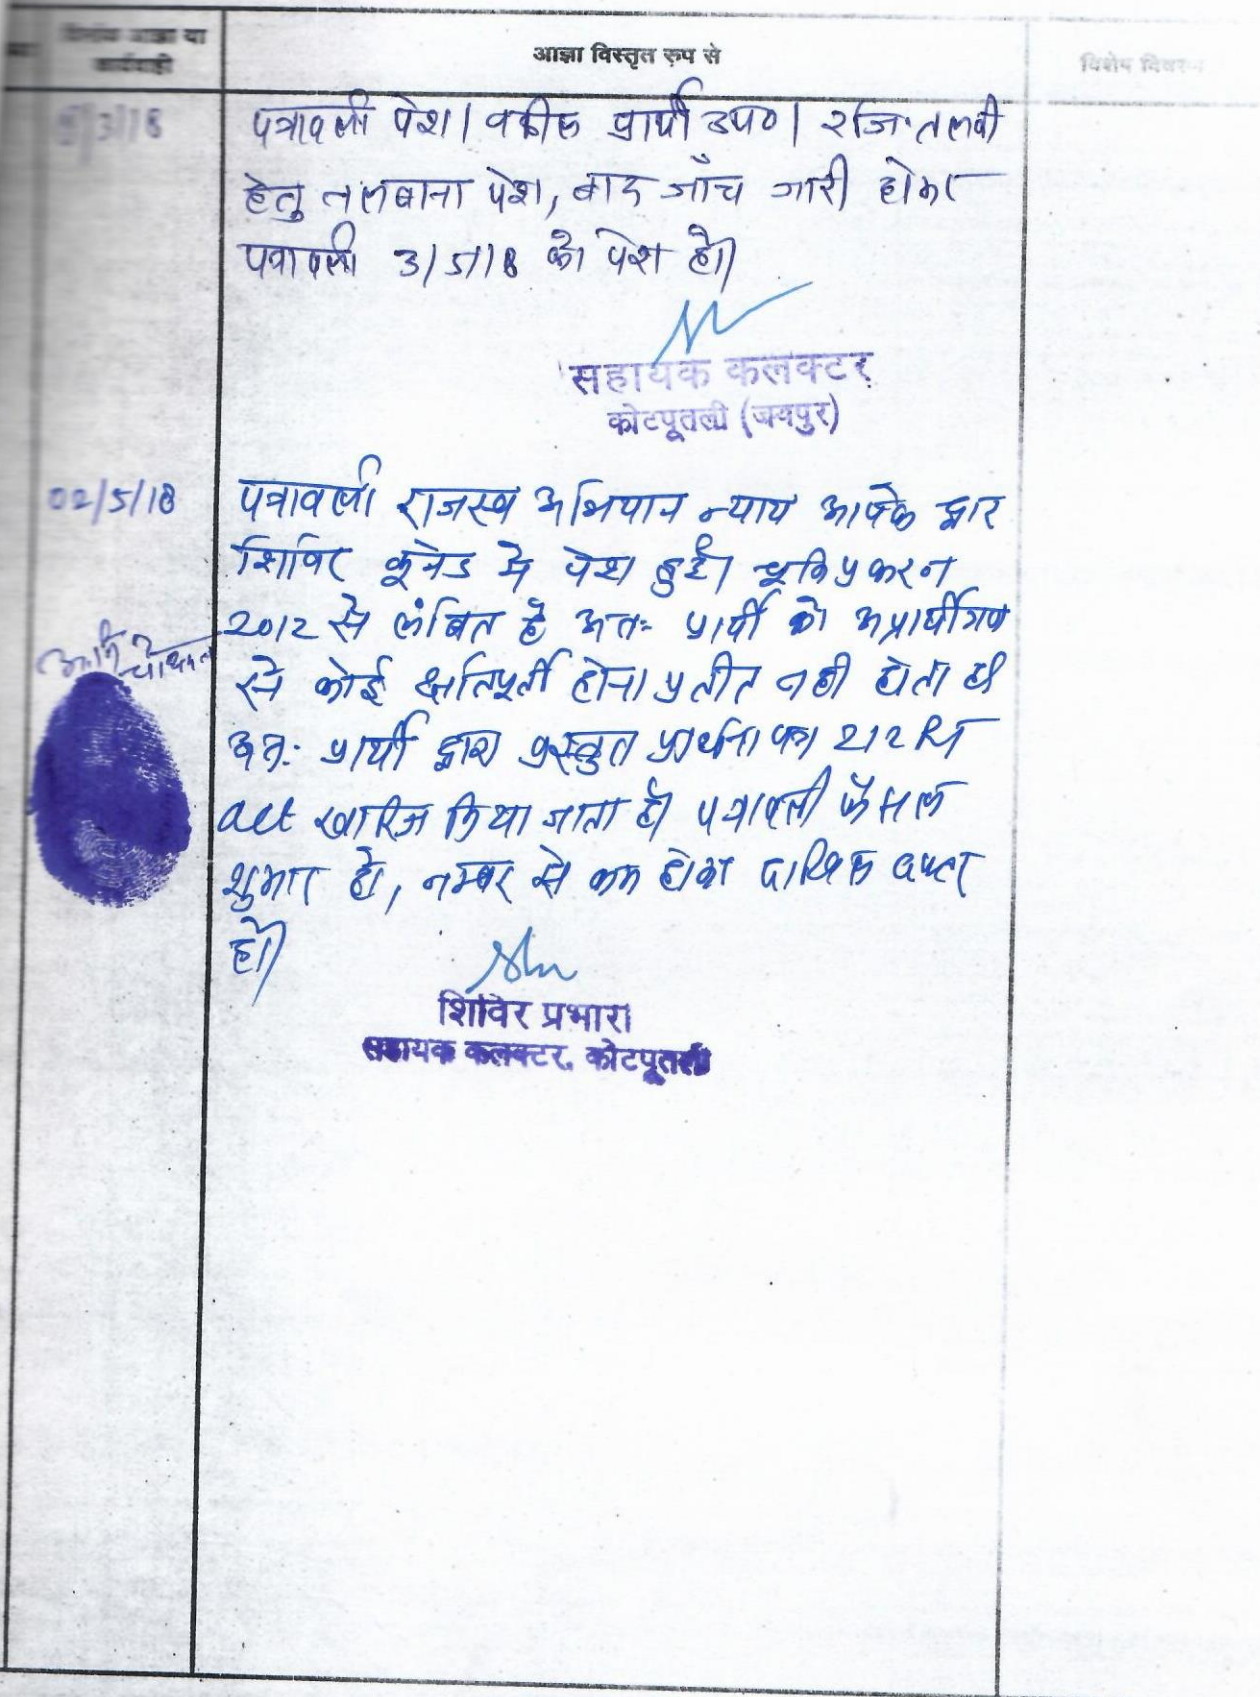 दिनांक आज्ञा या
कार्यवाही
आज्ञा विस्तृत रुप से
विशेष विवरण
/3/18
पत्रावली पेश। वकील प्रार्थी उप०। रजि. तलवी
हेतु तलबाना पेश, बाद जाँच जारी होकर
पत्रावली 3/5/18 को पेश हो।
सहायक कलक्टर
कोटपूतली (जयपुर)
02/5/18
पत्रावली राजस्व अभियान न्याय आपके द्वार
शिविर कूजेड मे पेश हुई। चूकि प्रकरन
2012 से लंबित है अतः प्रार्थी को अप्रार्थीगण
से कोई क्षतिपूर्ती होना प्रतीत नही होता है।
अतः प्रार्थी द्वारा प्रस्तुत प्रार्थना पत्र 212 RT
act खारिज किया जाता है। पत्रावली फैसल
शुमार हो, नम्बर से कम होकर दाखिल दफ्तर
हो।
शिविर प्रभारी
सहायक कलक्टर, कोटपूतली